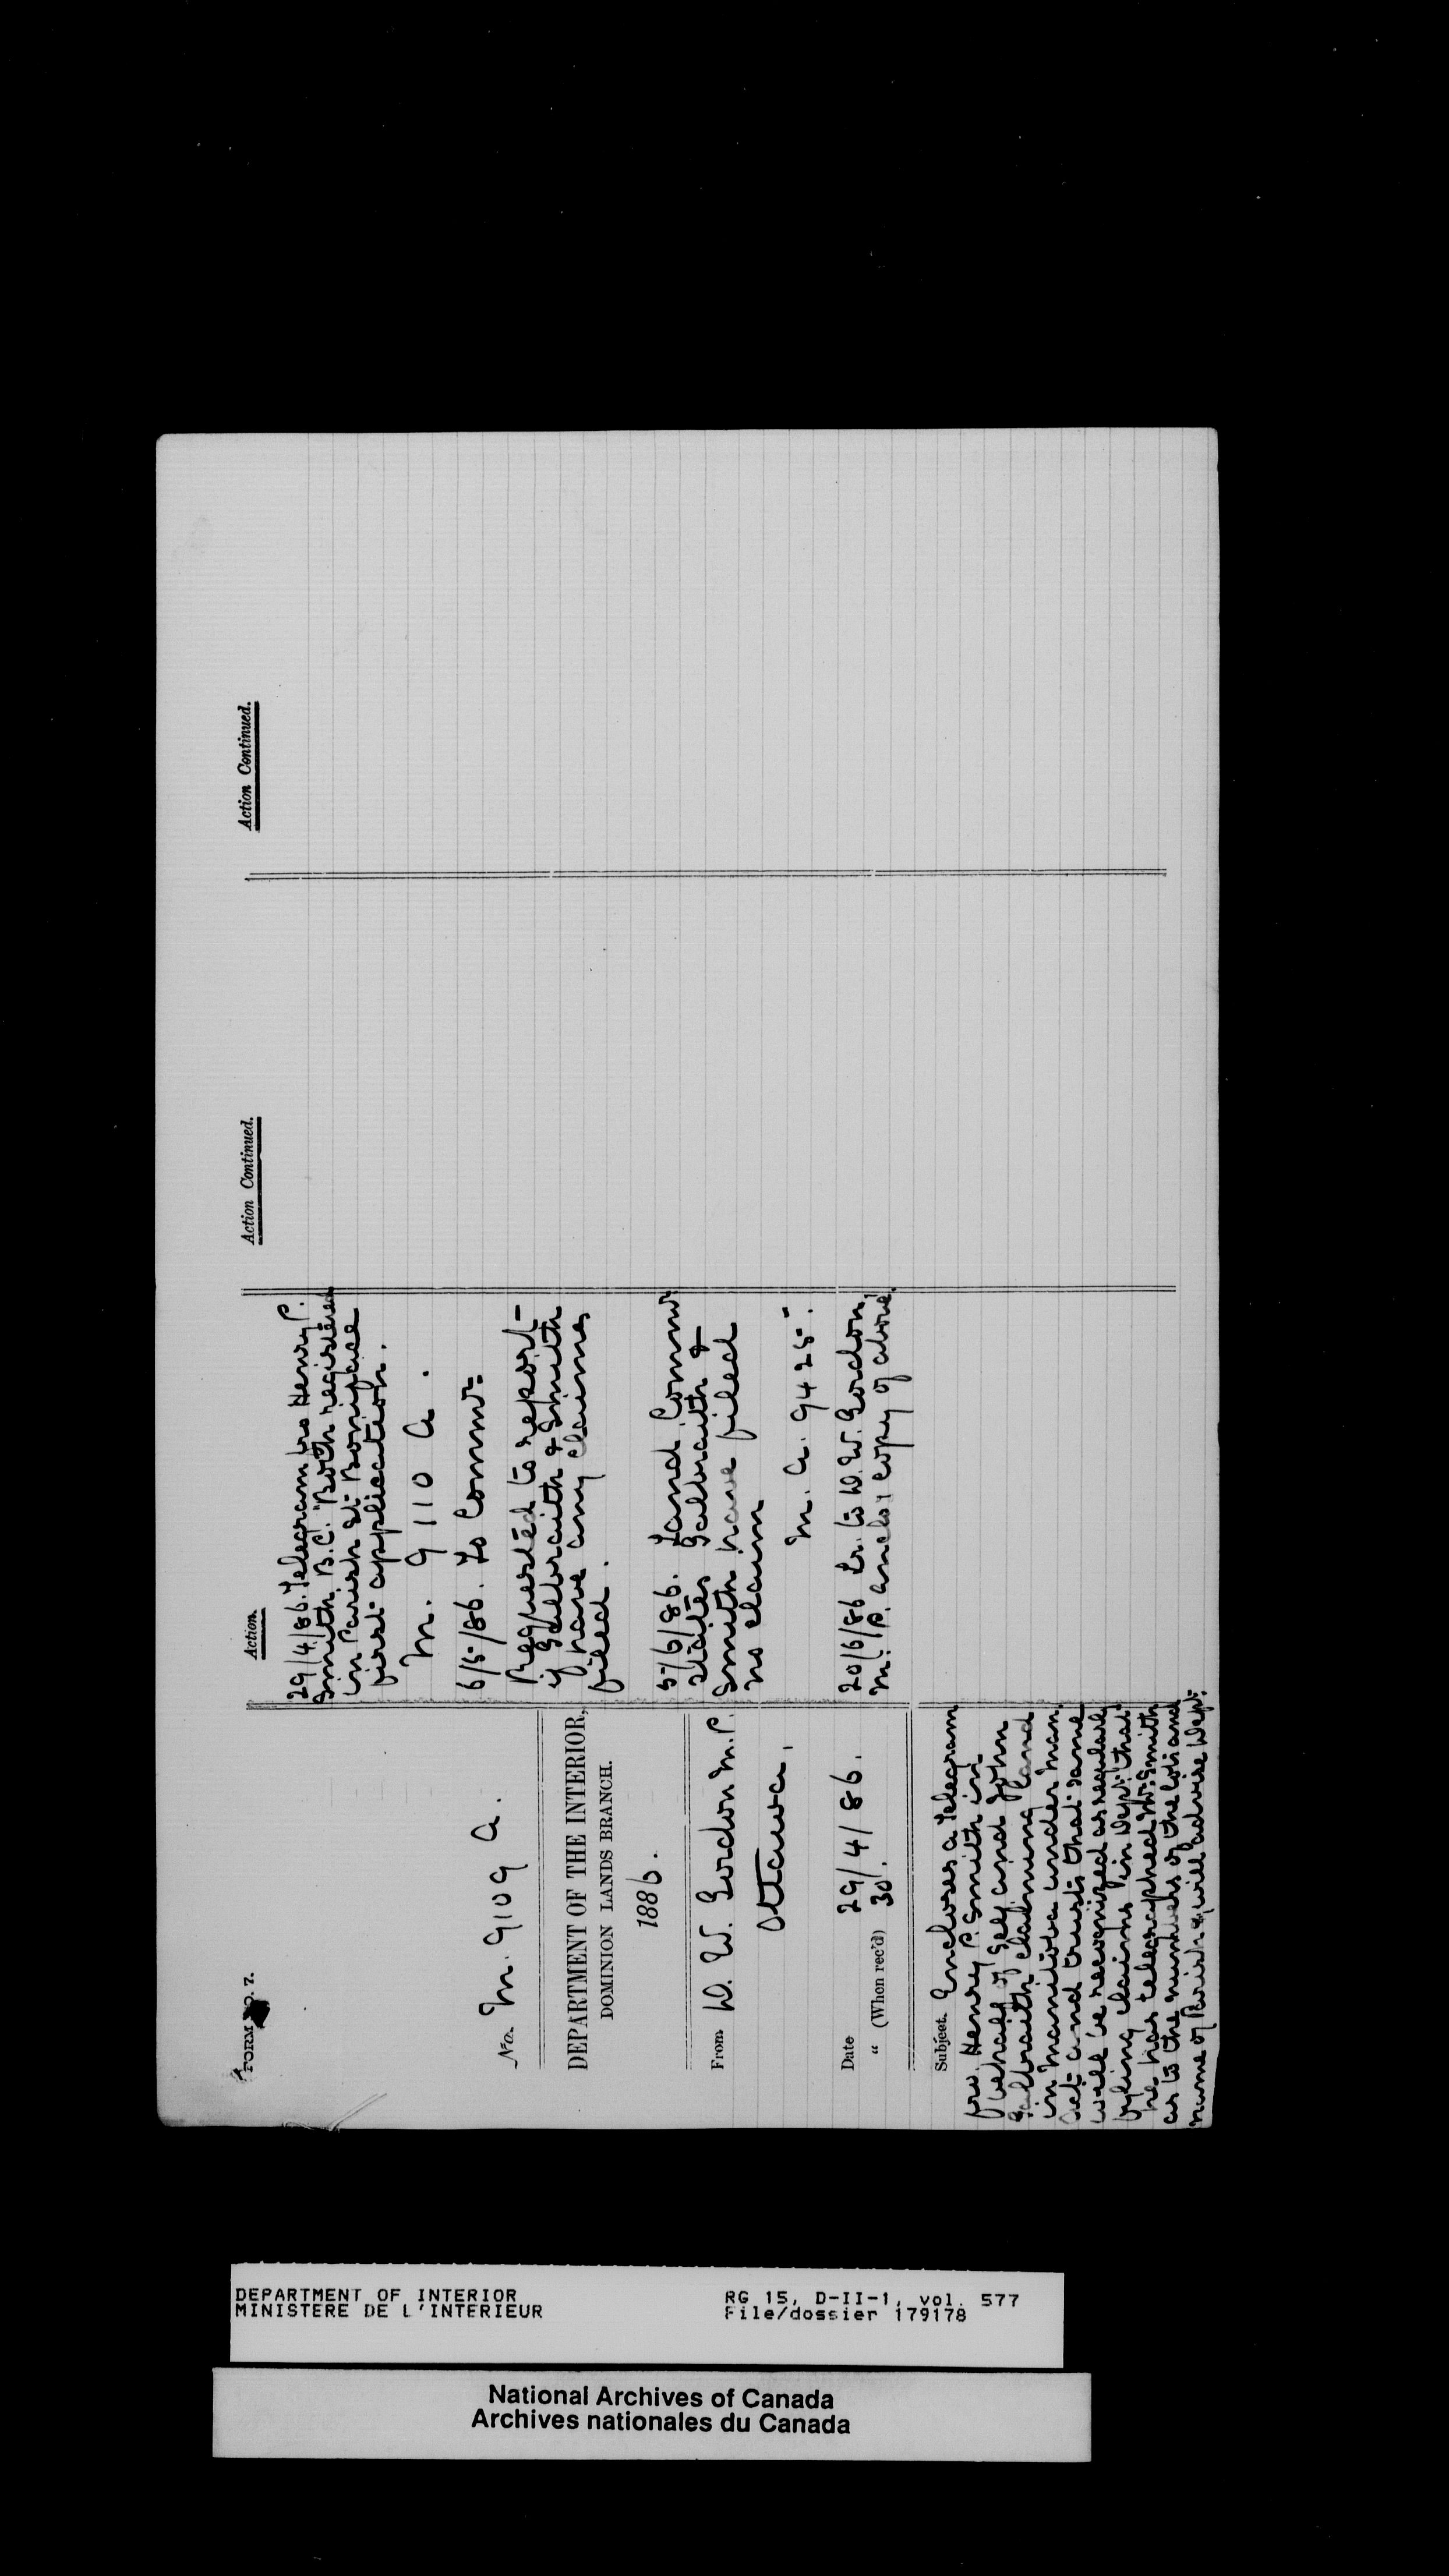 FORM No. 7.
No. M. 9109 A.
DEPARTMENT OF THE INTERIOR,
DOMINION LANDS BRANCH.
1886.
From D. W. Gordon M.P.
Ottawa,
Date 29/4/86.
" (When rec'd) 30/.
Subject. Encloses a telegram
fro. Henry P. Smith in
behalf of self and John
Galbraith claiming land
in Manitoba under Man.
Act and trusts that same
will be recognized as regularly
fyling claims in Dept. that
he has telegraphed Mr. Smith
as to the numbers of the lots and
name of Parish & will advise Dept.
Action.
29/4/86. Telegram fro Henry P.
Smith B.C. "Both registered
in Parish St. Boniface
first application.
M. 9110 A.
6/5/86. To Commr.
Requested to report
if Galbraith & Smith
have any claims
filed.
5/6/86. Land Commr
states Galbraith &
Smith have filed
no claim
M. A. 9425.
20/6/86 Lr. to D. W. Gordon,
M.P. enclos copy of above.
Action Continued.
Action Continued.
DEPARTMENT OF INTERIOR
MINISTERE DE L'INTERIEUR
RG 15, D-II-1, vol. 577
File/dossier 179178
National Archives of Canada
Archives nationales du Canada